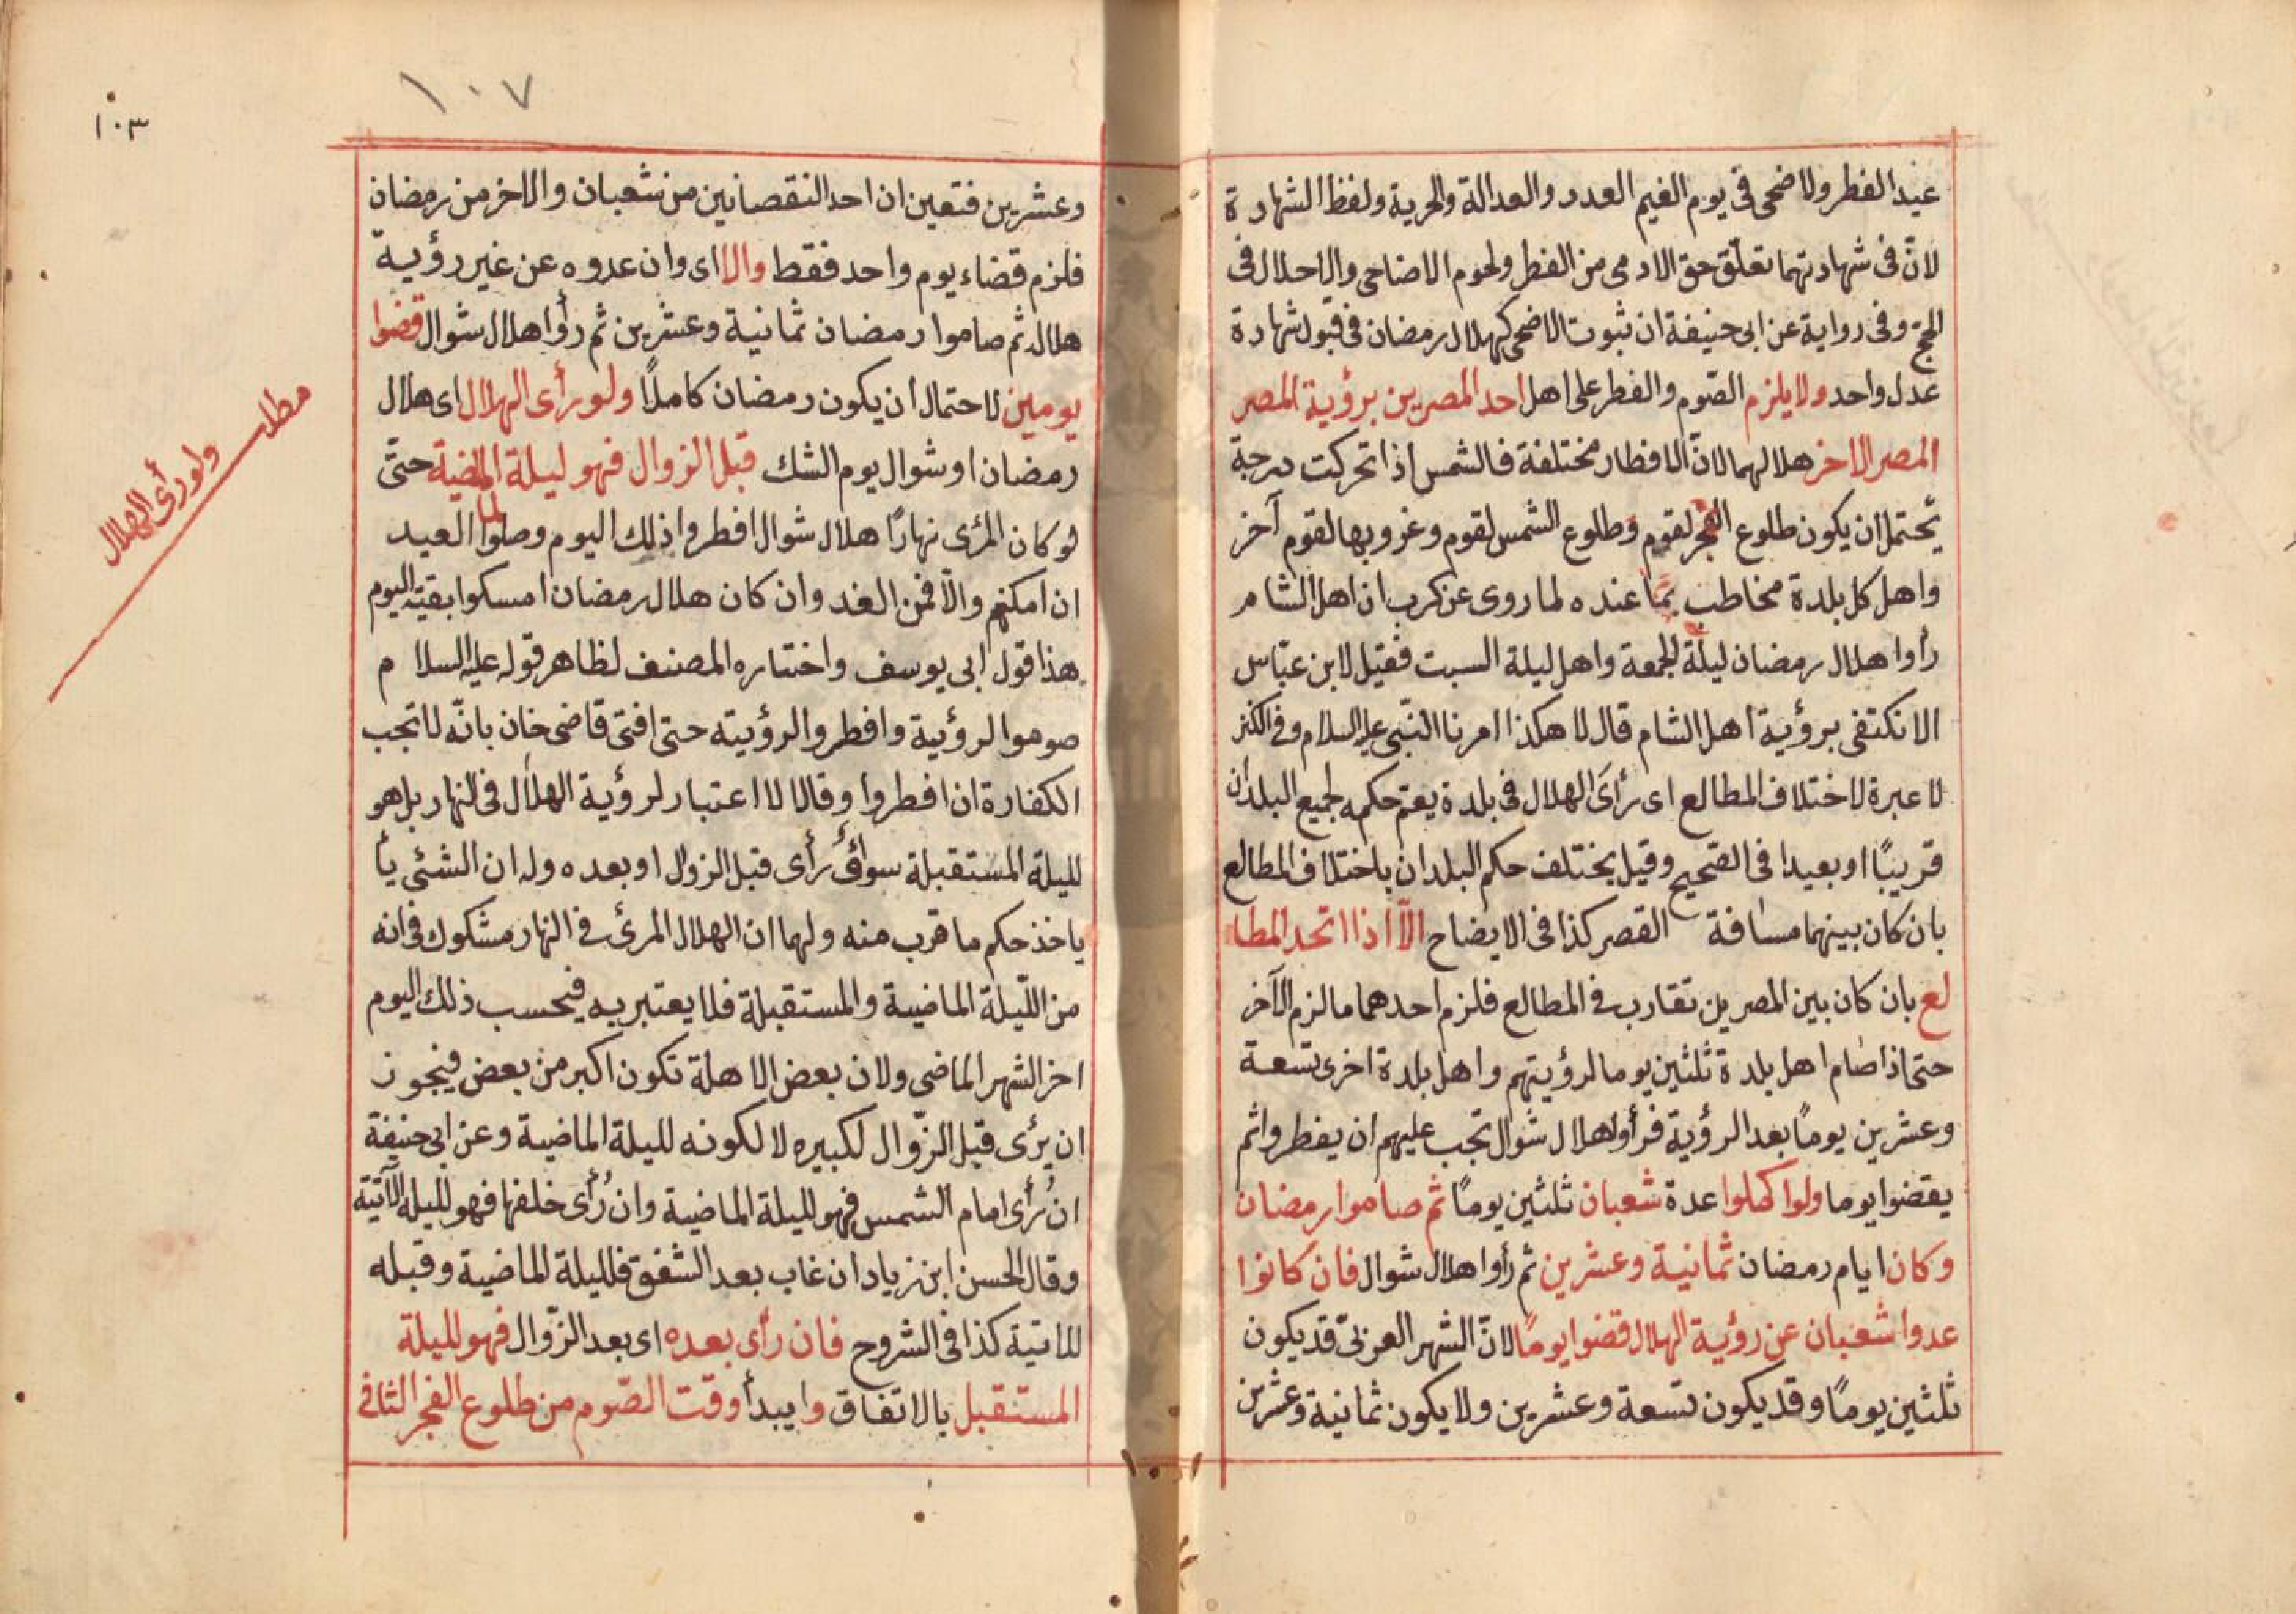 عيد الفطر ولاضحى فى يوم الغيم العدد والعدالة والحرية ولفظ الشهادة
لانّ فى شهادتهما تعلّق حق الادمى من الفطر ولحوم الاضاحى والاحلال فى
الحج وفى رواية عن ابى حنيفة ان ثبوت الاضحى كهلال رمضان فى قبول شهادة
عدل واحد ولا يلزم الصّوم والفطر على اهل احد المصرين برؤية المصر
المصر الاخر هلالهما لانّ الاقطار مختلفة فالشمس اذا تحركت درجة
يحتمل ان يكون طلوع الفجر لقوم وطلوع الشمس لقوم وغروبها لقوم آخر
واهل كل بلدة مخاطب بما عنده لما روى عن كرب ان اهل الشام
رأوا هلال رمضان ليلة الجمعة واهل ليلة السبت فقيل لابن عبّاس
الا نكتفى برؤية اهل الشام قال لا هكذا امرنا النّبى عليه السلام وفى الكنز
لا عبرة لاختلاف المطالع اى رأى الهلال فى بلدة يعمّ حكمه لجميع البلدان
قريبًا او بعيدا فى الصّحيح وقيل يختلف حكم البلدان باختلاف المطالع
بان كان بينهما مسافة القصر كذا فى الايضاح الّا اذا اتحد المطا
لع بان كان بين المصرين تقارب فى المطالع فلزم احدهما ما لزم الآخر
حتى اذا صام اهل بلدة ثلثين يوما لرؤيتهم واهل بلدة اخرى تسعة
وعشرين يومًا بعد الرؤية فرأوا هلال شوال تجب عليهم ان يفطروا ثم
يقضوا يوما ولو اكملوا عدة شعبان ثلثين يومًا ثم صاموا رمضان
وكان ايام رمضان ثمانية وعشرين ثم رأوا هلال شوال فان كانوا
عدوا شعبان عن رؤية الهلال قضوا يومًا لانّ الشهر العربىّ قد يكون
ثلثين يومًا وقد يكون تسعة وعشرين ولا يكون ثمانية وعشرين
١٠٧
١٠٣
وعشرين فتعين ان احد النقصانين من شعبان والاخر من رمضان
فلزم قضاء يوم واحد فقط والا اى وان عدوه عن غير رؤية
هلال ثم صاموا رمضان ثمانية وعشرين ثم رأوا هلال شوال قضوا
يومين لاحتمال ان يكون رمضان كاملًا ولو رأى الهلال اى هلال
رمضان او شوال يوم الشك قبل الزوال فهو ليلة الماضية حتّى
لو كان المرئى نهارًا هلال شوال افطروا ذلك اليوم وصلوا العيد
ان امكنهم والّا فمن الغد وان كان هلال رمضان امسكوا بقية اليوم
هذا قول ابى يوسف واختاره المصنف لظاهر قوله عليه السلام
صوموا لرؤية وافطروا لرؤيته حتى افتى قاضى خان بانّه لا تجب
الكفارة ان افطروا وقالا لا اعتبار لرؤية الهلال فى النهار بل هو
لليلة المستقبلة سواءٌ رأى قبل الزوال او بعده وله ان الشئى يأ
ياخذ حكم ما قرب منه ولهما ان الهلال المرئ فى النهار مشكوك فى انه
من اللّيلة الماضية والمستقبلة فلا يعتبر به فيحسب ذلك اليوم
اخر الشهر الماضى ولان بعض الاهلة تكون اكبر من بعض فيجوز
ان يرُى قبل الزّوال لكبيره لا لكونه لليلة الماضية وعن ابى حنيفة
ان رُأى امام الشمس فهو لليلة الماضية وان رُأى خلفها فهو لليلة الآتية
وقال الحسن ابن زياد ان غاب بعد الشفق فلليلة الماضية وقبله
للاتية كذا فى الشروح فان رأى بعده اى بعد الزّوال فهو لليلة
المستقبل بالاتفاق وايبدأ وقت الصّوم من طلوع الفجر الثانى
مطلب
ولو رأى الهلال